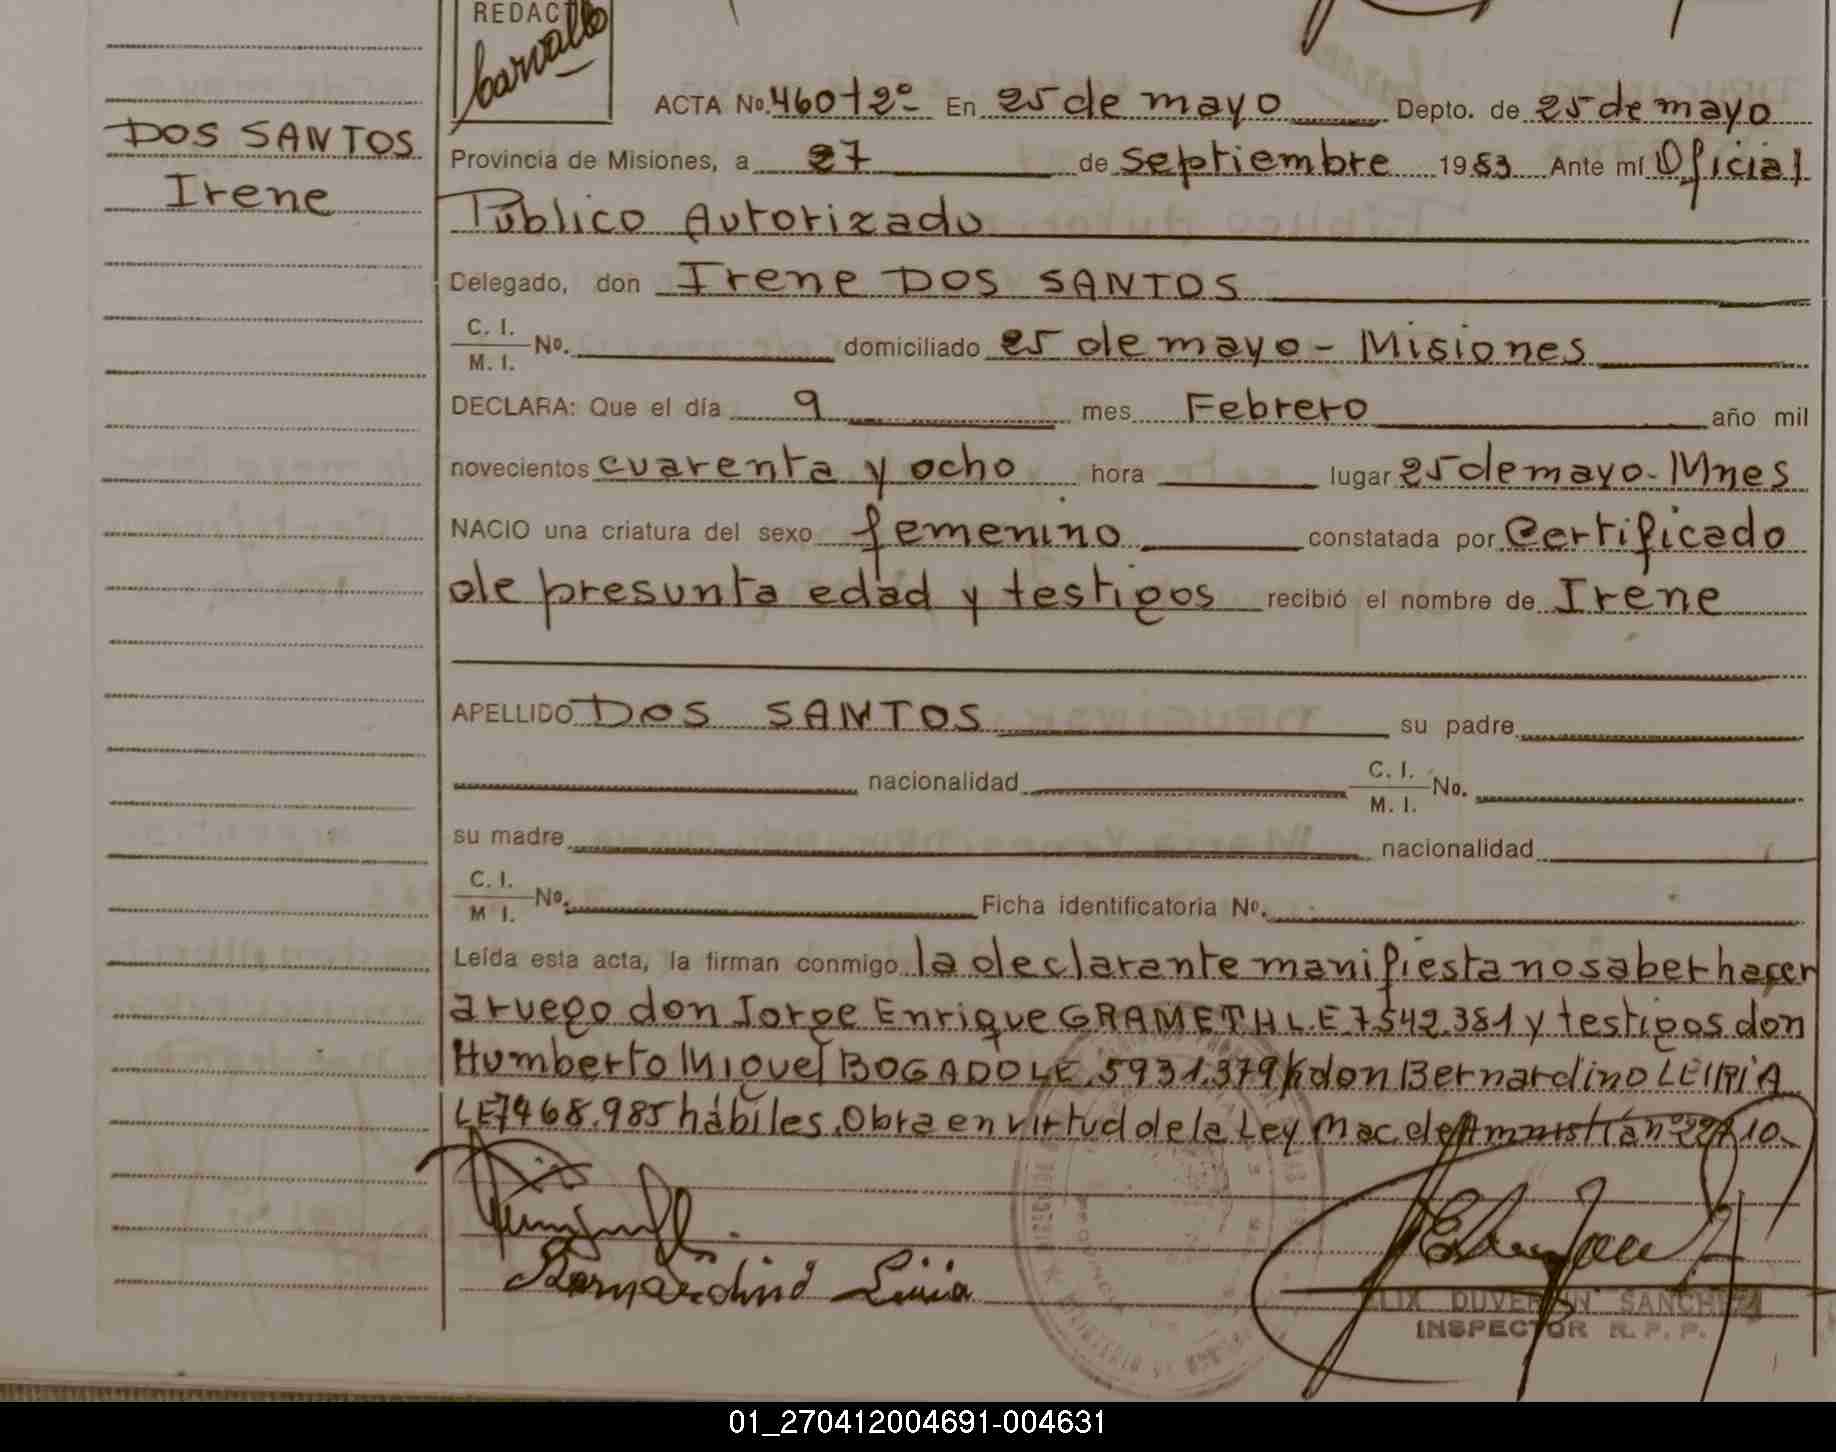 REDAC
Carvallo
DOS SANTOS
Irene
ACTA No. 460 t 2º En 25 de mayo Depto. de 25 de mayo
Provincia de Misiones, a 27 de septiembre 1983 Ante mí Oficial
Público Autorizado
Delegado, don Irene DOS SANTOS
C. I.
M. I. No. domiciliado 25 de mayo - Misiones
DECLARA: Que el día 9 mes Febrero año mil
novecientos cuarenta y ocho hora lugar 25 de mayo - Mnes
NACIO una criatura del sexo femenino constatada por Certificado
de presunta edad y testigos recibió el nombre de Irene
APELLIDO DOS SANTOS su padre
nacionalidad C. I.
M. I. No.
su madre nacionalidad
C. I.
M I. No. Ficha identificatoria No.
Leída esta acta, la firman conmigo la declarante manifiesta no saber hacer
a ruego don Jorge Enrique GRAMETH L.E 7.542.381 y testigos don
Humberto Miguel BOGADO LE. 5931.379 don Bernardino LEIRIA
LE 7468.985 hábiles. Obra en virtud de la Ley Nac. de Amnistía nº 22410.
Bernardino Liria
LIX DUVER N SANCHEZ
INSPECTOR R. P. P.
01_270412004691-004631